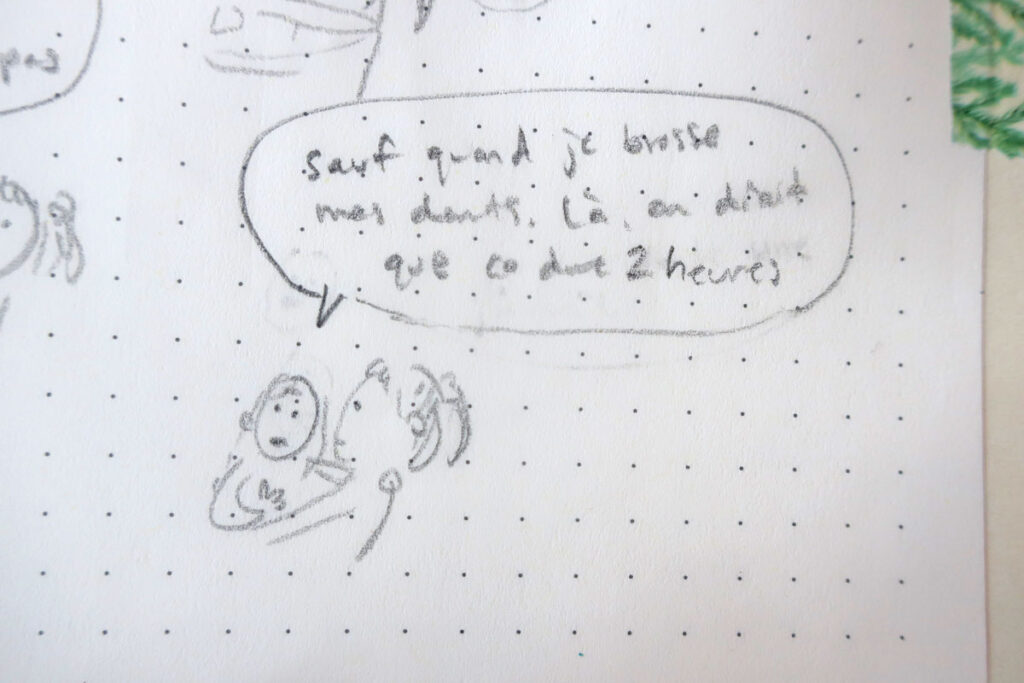 pas
sauf quand je brosse
mes dents. Là, on dirait
que ça dure 2 heures